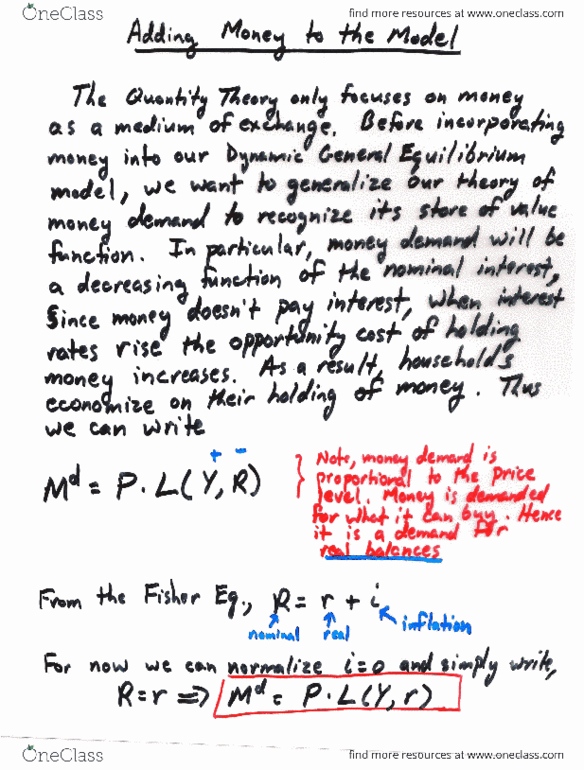 OneClass
find more resources at www.oneclass.com
Adding Money to the Model
The Quantity Theory only focuses on money
as a medium of exchange. Before incorporating
money into our Dynamic General Equilibrium
model, we want to generalize our theory of
money demand to recognize its store of value
function. In particular, money demand will be
a decreasing function of the nominal interest,
Since money doesn't pay interest, when interest
rates rise the opportunity cost of holding
money increases. As a result, households
economize on their holding of money. Thus
we can write
+ -
Mᵈ = P · L(Y, R)
} Note, money demand is
proportional to the price
level. Money is demanded
for what it can buy. Hence
it is a demand for
real balances
From the Fisher Eq., R = r + i
nominal real inflation
For now we can normalize i=0 and simply write,
R=r ⇒ Mᵈ = P · L(Y, r)
OneClass
find more resources at www.oneclass.com